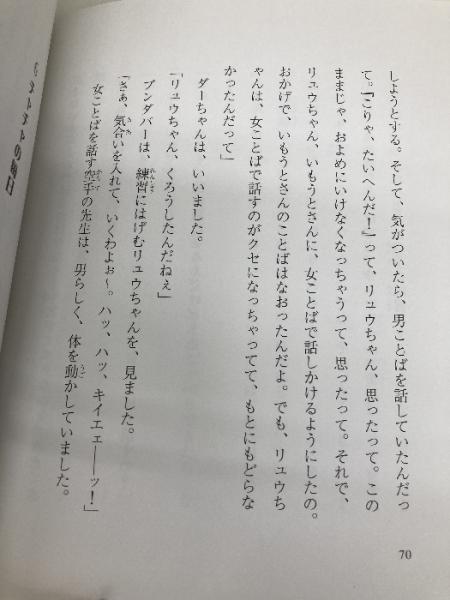 しようとする。そして、気がついたら、男ことばを話していたんだっ
て。『こりゃ、たいへんだ！』って、リュウちゃん、思ったって。この
ままじゃ、およめにいけなくなっちゃうって、思ったって。それで、
リュウちゃん、いもうとさんに、女ことばで話しかけるようにしたの。
おかげで、いもうとさんのことばはなおったんだよ。でも、リュウち
ゃんは、女ことばで話すのがクセになっちゃってて、もとにもどらな
かったんだって」
ダーちゃんは、いいました。
「リュウちゃん、くろうしたんだねぇ」
ブンダバーは、練習にはげむリュウちゃんを、見ました。
「さぁ、気合いを入れて、いくわよぉ〜。ハッ、ハッ、キイエェ――ッ！」
女ことばを話す空手の先生は、男らしく、体を動かしていました。
70